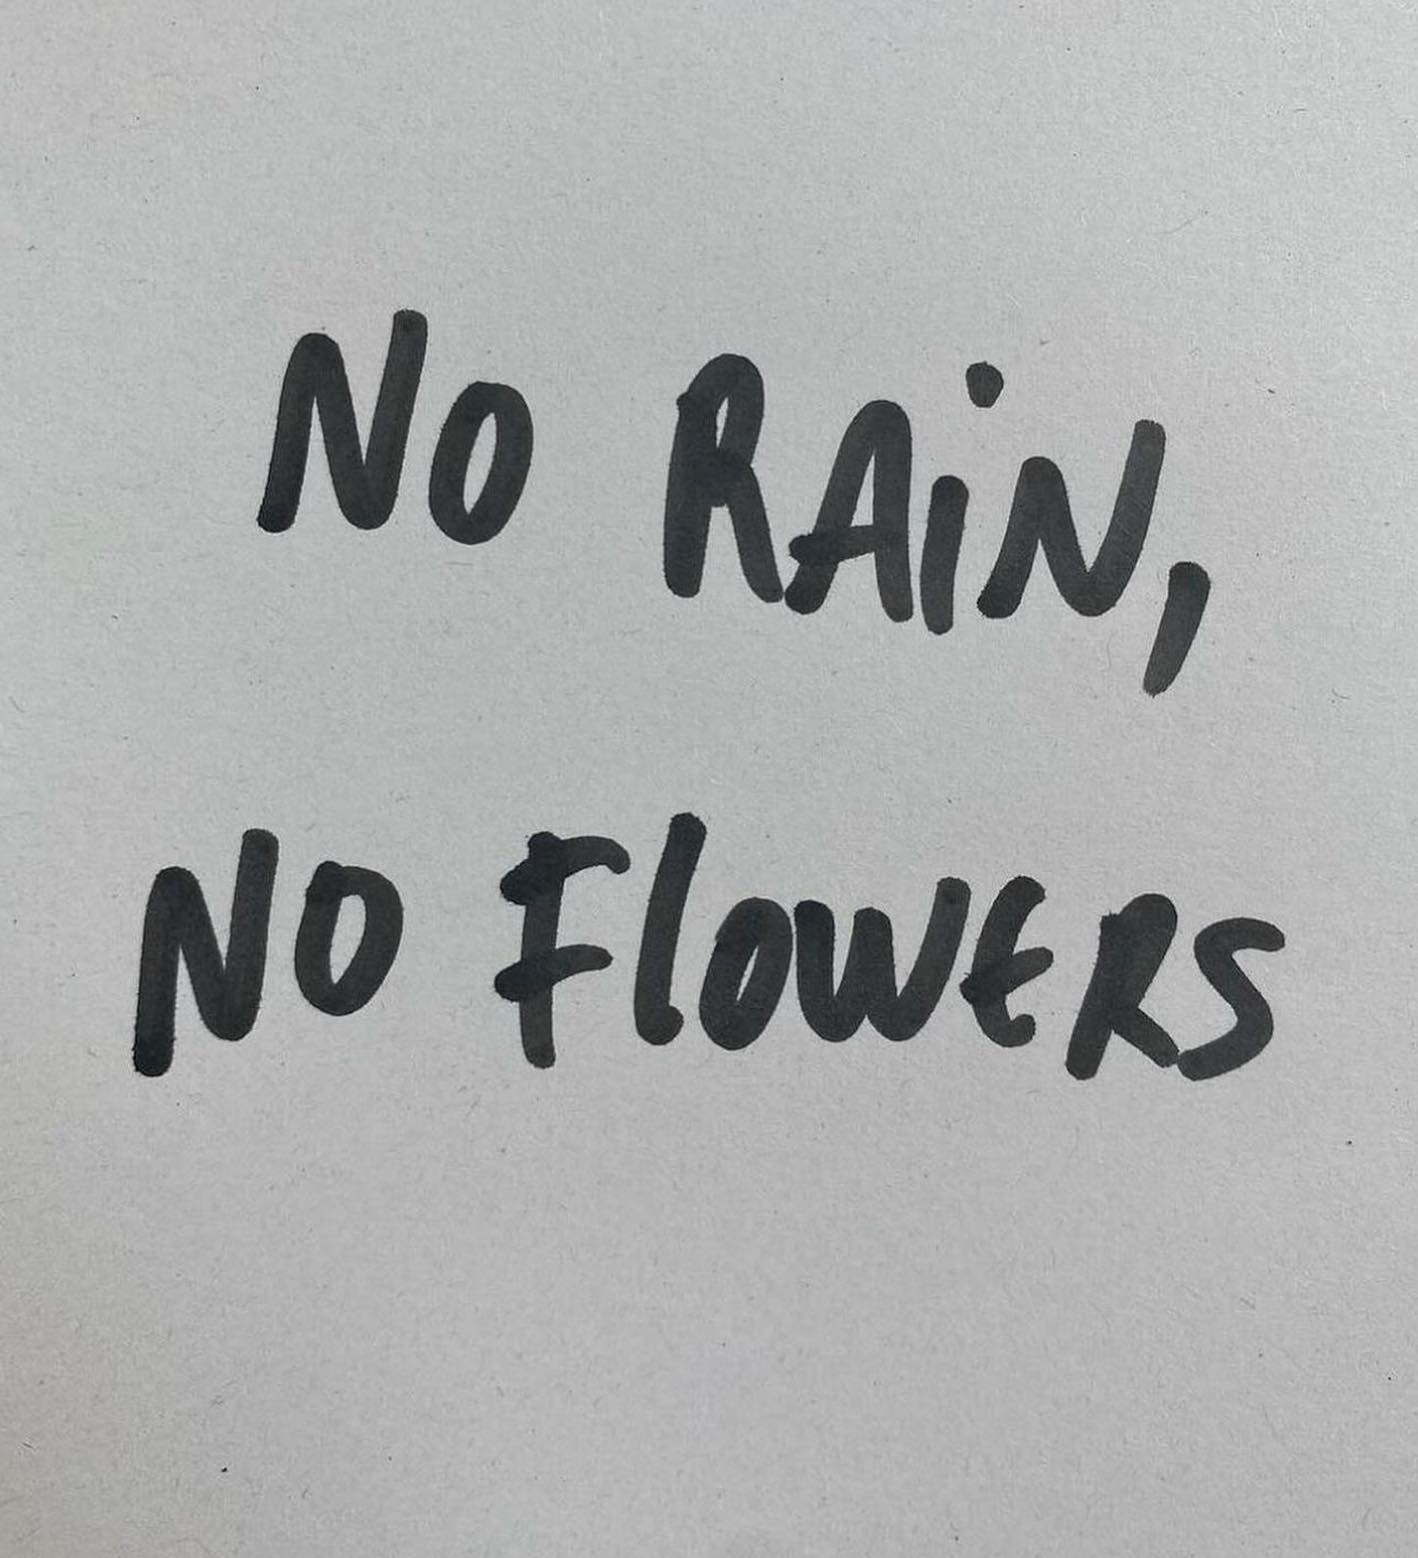 NO RAiN,
NO FlOWERS